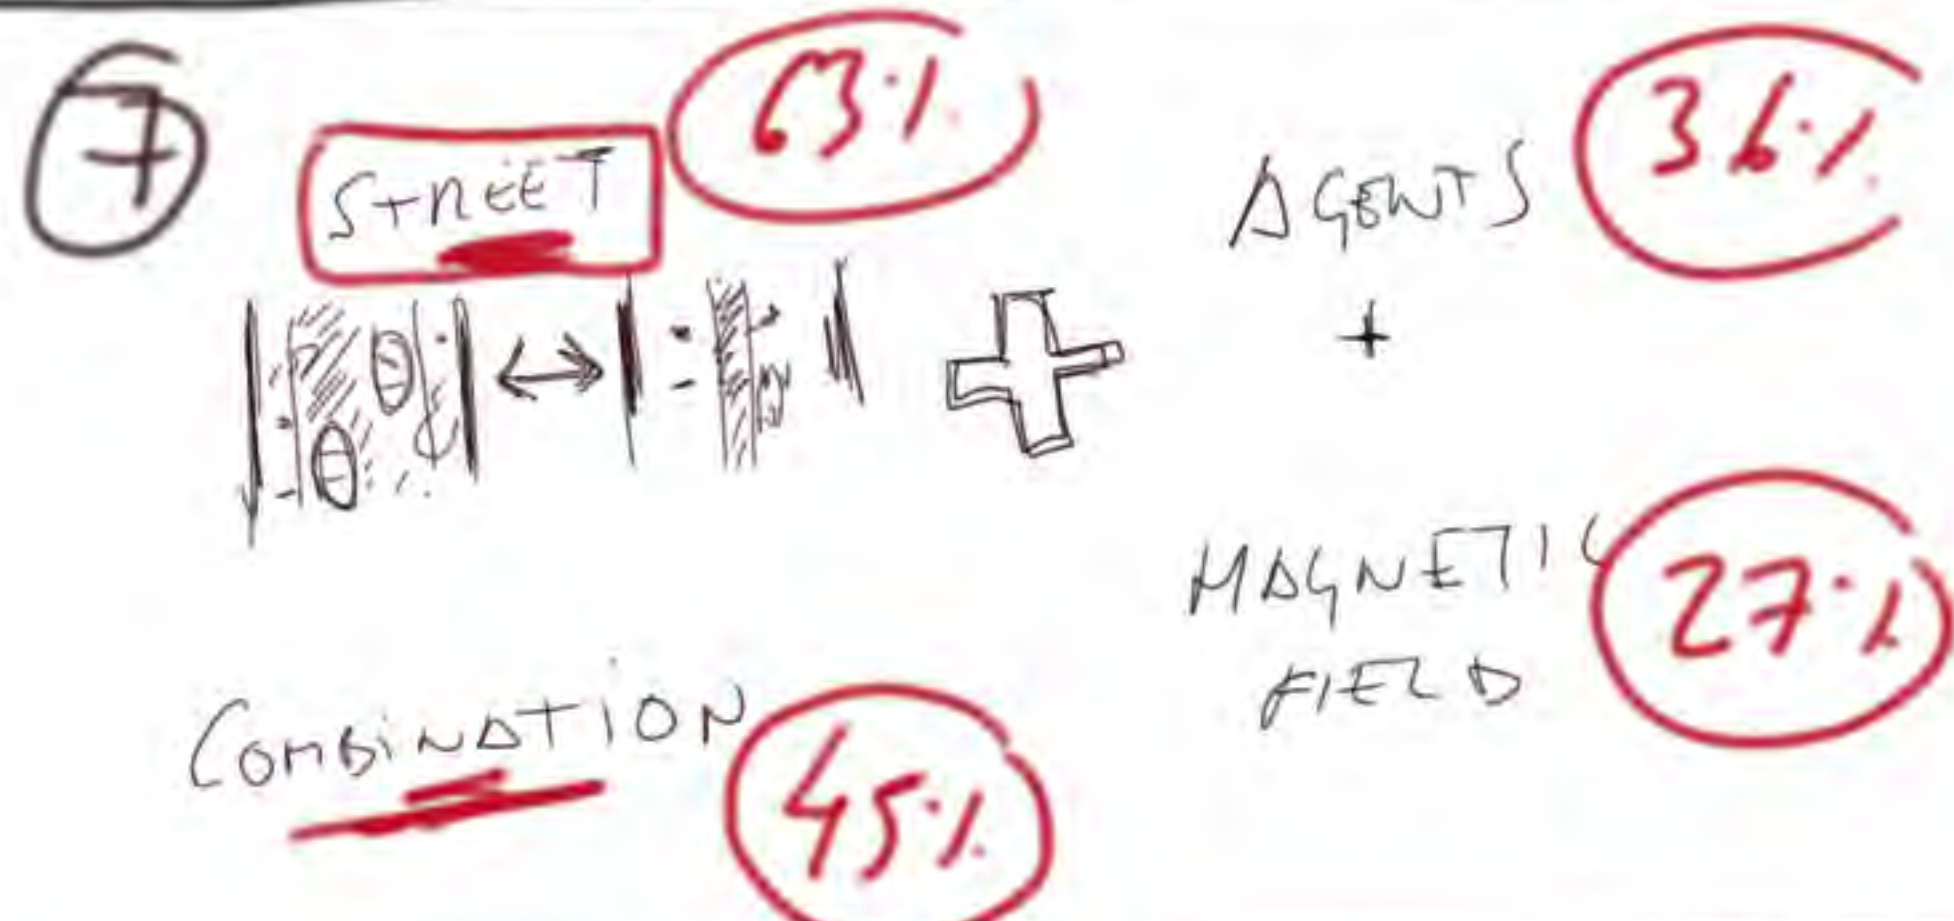 7
STREET 63%
AGENTS 36%
+
MAGNETIC 27%
FIELD
COMBINATION 45%